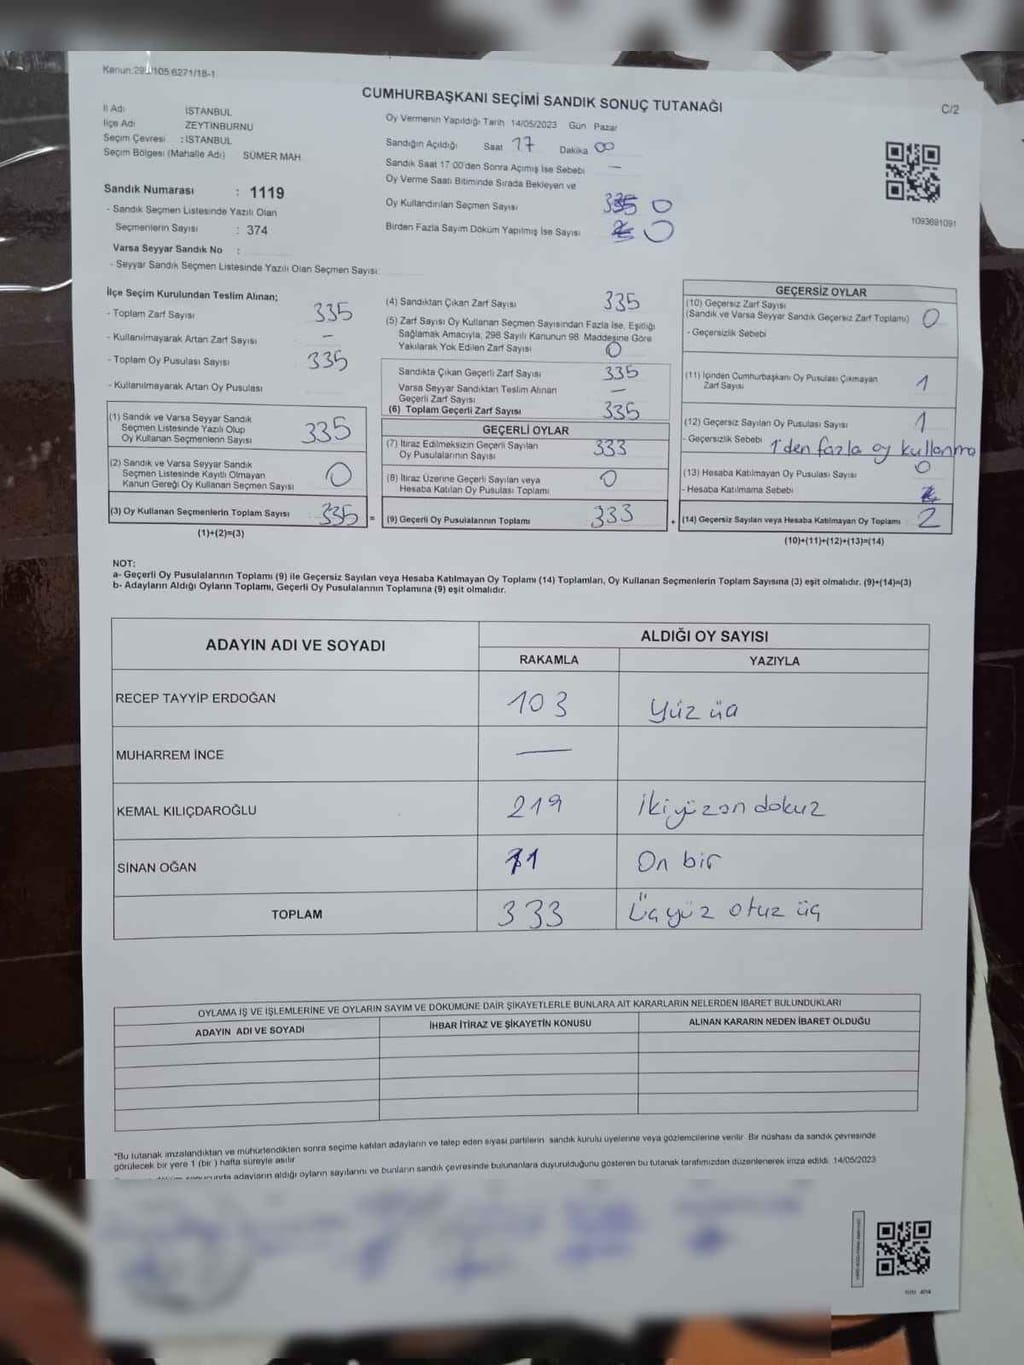 Kanun:298/105 6271/18-1
CUMHURBAŞKANI SEÇİMİ SANDIK SONUÇ TUTANAĞI
C/2
İl Adı : İSTANBUL
İlçe Adı ZEYTİNBURNU
Seçim Çevresi : İSTANBUL
Seçim Bölgesi (Mahalle Adı) SÜMER MAH.
Sandık Numarası : 1119
- Sandık Seçmen Listesinde Yazılı Olan
Seçmenlerin Sayısı : 374
Varsa Seyyar Sandık No :
- Seyyar Sandık Seçmen Listesinde Yazılı Olan Seçmen Sayısı:
Oy Vermenin Yapıldığı Tarih 14/05/2023 Gün Pazar
Sandığın Açıldığı Saat 17 Dakika 00
Sandık Saat 17.00'den Sonra Açımış İse Sebebi —
Oy Verme Saati Bitiminde Sırada Bekleyen ve
Oy Kullandırılan Seçmen Sayısı 335 0
Birden Fazla Sayım Döküm Yapılmış İse Sayısı 0
1093691091
İlçe Seçim Kurulundan Teslim Alınan;
- Toplam Zarf Sayısı 335
- Kullanılmayarak Artan Zarf Sayısı —
- Toplam Oy Pusulası Sayısı 335
- Kullanılmayarak Artan Oy Pusulası
(1) Sandık ve Varsa Seyyar Sandık
Seçmen Listesinde Yazılı Olup
Oy Kullanan Seçmenlerin Sayısı 335
(2) Sandık ve Varsa Seyyar Sandık
Seçmen Listesinde Kayıtlı Olmayan
Kanun Gereği Oy Kullanan Seçmen Sayısı 0
(3) Oy Kullanan Seçmenlerin Toplam Sayısı 335 =
(1)+(2)=(3)
(4) Sandıktan Çıkan Zarf Sayısı 335
(5) Zarf Sayısı Oy Kullanan Seçmen Sayısından Fazla İse, Eşitliği
Sağlamak Amacıyla, 298 Sayılı Kanunun 98. Maddesine Göre
Yakılarak Yok Edilen Zarf Sayısı 0
Sandıkta Çıkan Geçerli Zarf Sayısı 335
Varsa Seyyar Sandıktan Teslim Alınan
Geçerli Zarf Sayısı —
(6) Toplam Geçerli Zarf Sayısı 335
GEÇERLİ OYLAR
(7) İtiraz Edilmeksizin Geçerli Sayılan
Oy Pusulalarının Sayısı 333
(8) İtiraz Üzerine Geçerli Sayılan veya
Hesaba Katılan Oy Pusulası Toplamı 0
(9) Geçerli Oy Pusulalarının Toplamı 333 +
GEÇERSİZ OYLAR
(10) Geçersiz Zarf Sayısı
(Sandık ve Varsa Seyyar Sandık Geçersiz Zarf Toplamı) 0
- Geçersizlik Sebebi
(11) İçinden Cumhurbaşkanı Oy Pusulası Çıkmayan
Zarf Sayısı 1
(12) Geçersiz Sayılan Oy Pusulası Sayısı 1
- Geçersizlik Sebebi 1'den fazla oy kullanma
(13) Hesaba Katılmayan Oy Pusulası Sayısı 0
- Hesaba Katılmama Sebebi
(14) Geçersiz Sayılan veya Hesaba Katılmayan Oy Toplamı 2
(10)+(11)+(12)+(13)=(14)
NOT:
a- Geçerli Oy Pusulalarının Toplamı (9) ile Geçersiz Sayılan veya Hesaba Katılmayan Oy Toplamı (14) Toplamları, Oy Kullanan Seçmenlerin Toplam Sayısına (3) eşit olmalıdır. (9)+(14)=(3)
b- Adayların Aldığı Oyların Toplamı, Geçerli Oy Pusulalarının Toplamına (9) eşit olmalıdır.
ADAYIN ADI VE SOYADI ALDIĞI OY SAYISI
RAKAMLA YAZIYLA
RECEP TAYYİP ERDOĞAN 103 Yüz üç
MUHARREM İNCE —
KEMAL KILIÇDAROĞLU 219 İkiyüzon dokuz
SİNAN OĞAN 11 On bir
TOPLAM 333 Üçyüz otuz üç
OYLAMA İŞ VE İŞLEMLERİNE VE OYLARIN SAYIM VE DÖKÜMÜNE DAİR ŞİKAYETLERLE BUNLARA AİT KARARLARIN NELERDEN İBARET BULUNDUKLARI
ADAYIN ADI VE SOYADI İHBAR İTİRAZ VE ŞİKAYETİN KONUSU ALINAN KARARIN NEDEN İBARET OLDUĞU
*Bu tutanak imzalandıktan ve mühürlendikten sonra seçime katılan adayların ve talep eden siyasi partilerin sandık kurulu üyelerine veya gözlemcilerine verilir. Bir nüshası da sandık çevresinde
görülecek bir yere 1 (bir ) hafta süreyle asılır.
adayların aldığı oyların sayılarını ve bunların sandık çevresinde bulunanlara duyurulduğunu gösteren bu tutanak tarafımızdan düzenlenerek imza edildi. 14/05/2023